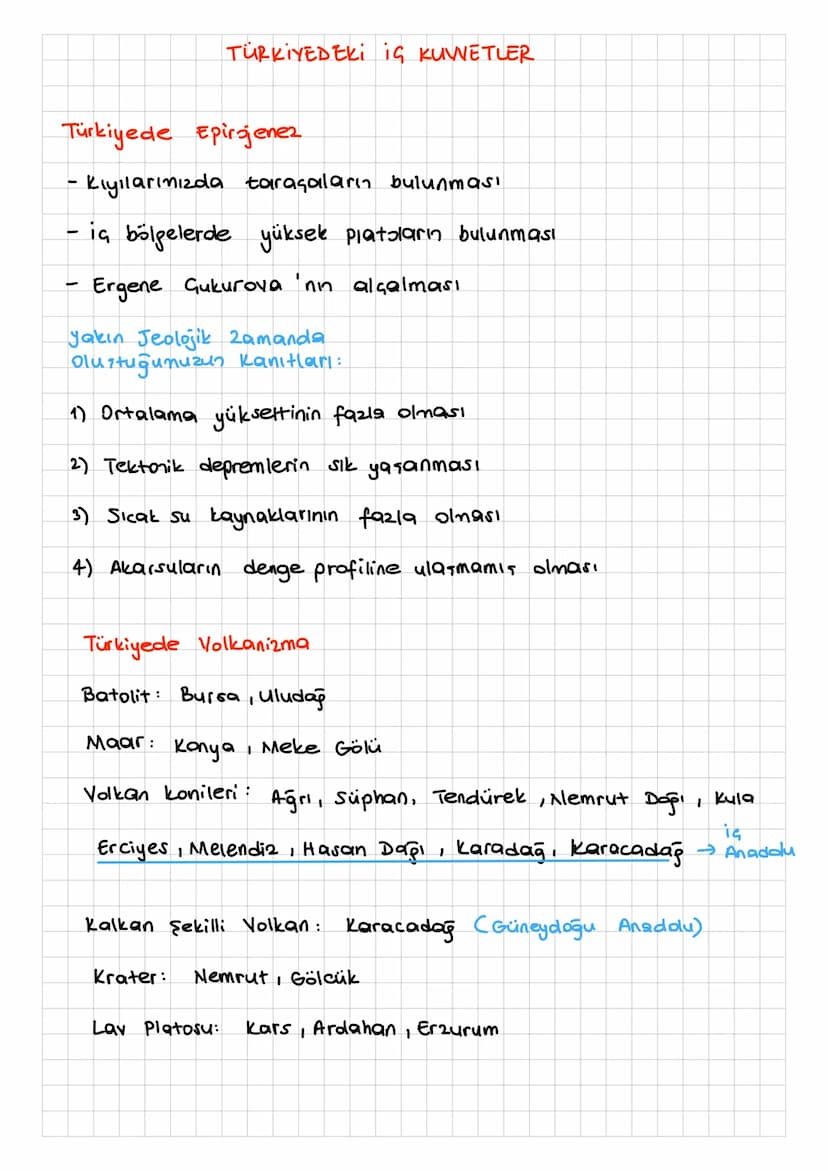 TÜRKİYEDEKİ İÇ KUVVETLER
Türkiyede Epirojenez
- Kıyılarımızda taraçaların bulunması
- iç bölgelerde yüksek platoların bulunması
- Ergene Çukurova 'nın alçalması
Yakın Jeolojik Zamanda
Oluştuğumuzun Kanıtları:
1) Ortalama yükseltinin fazla olması
2) Tektonik depremlerin sık yaşanması
3) Sıcak su kaynaklarının fazla olması
4) Akarsuların denge profiline ulaşmamış olması
Türkiyede Volkanizma
Batolit: Bursa, Uludağ
Maar: Konya, Meke Gölü
Volkan konileri: Ağrı, Süphan, Tendürek, Nemrut Dağı, Kula
Erciyes, Melendiz, Hasan Dağı, Karadağ, Karacadağ → iç Anadolu
Kalkan Şekilli Volkan: Karacadağ (Güneydoğu Anadolu)
Krater: Nemrut, Gölcük
Lav Platosu: Kars, Ardahan, Erzurum